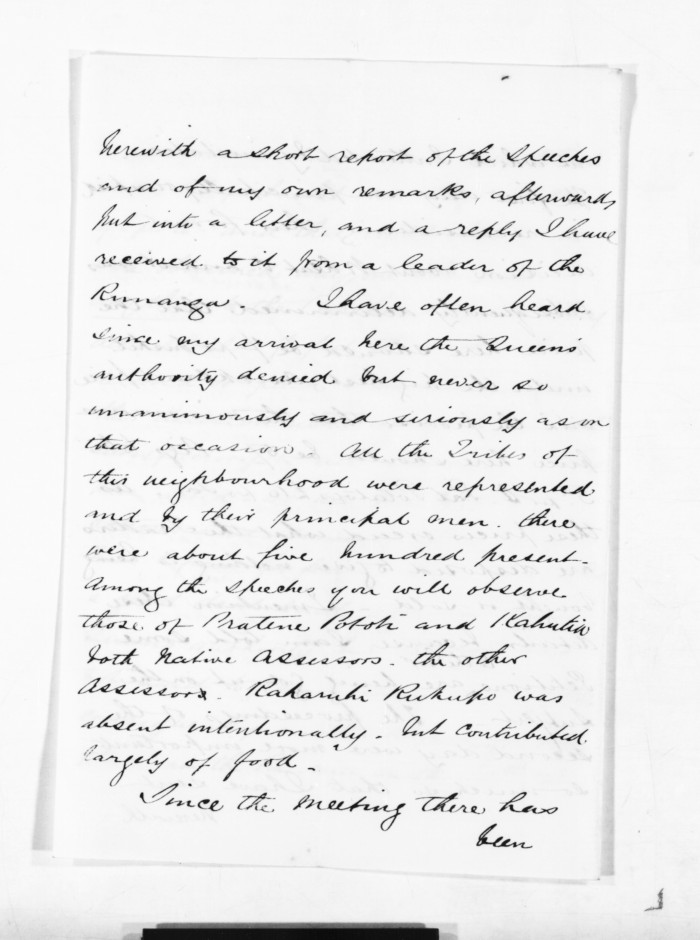 herewith a short report of the speeches
and of my own remarks, afterwards
put into a letter, and a reply I have
received to it from a leader of the
Runanga. I have often heard
since my arrival here the Queen's
authority denied but never so
unanimously and seriously as on
that occasion. All the Tribes of
this neighbourhood were represented
and by their principal men. there
were about five hundred present.
Among the speeches you will observe
those of Pratene Pototi and Kahutia
both Native Assessors. the other
Assessor. Raharuhi Rukupo was
absent intentionally. but contributed
largely of food.
Since the meeting there has
been